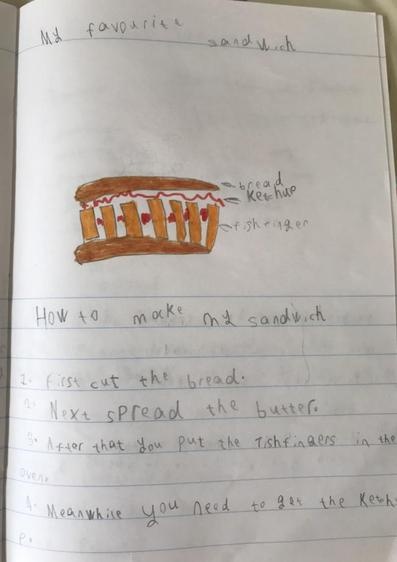 My favourite sandwich
bread
Ketchup
fishfinger
How to make my sandwich
1. First cut the bread.
2. Next spread the butter.
3. After that you put the fishfingers in the
oven.
4. Meanwhile you need to get the Ketch
p.